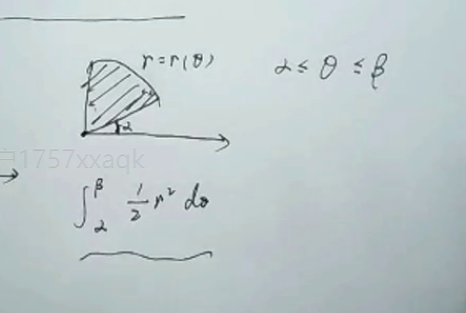 r = r(θ)
α ≤ θ ≤ β
α
户1757xxaqk
∫_α^β 1/2 r² dθ